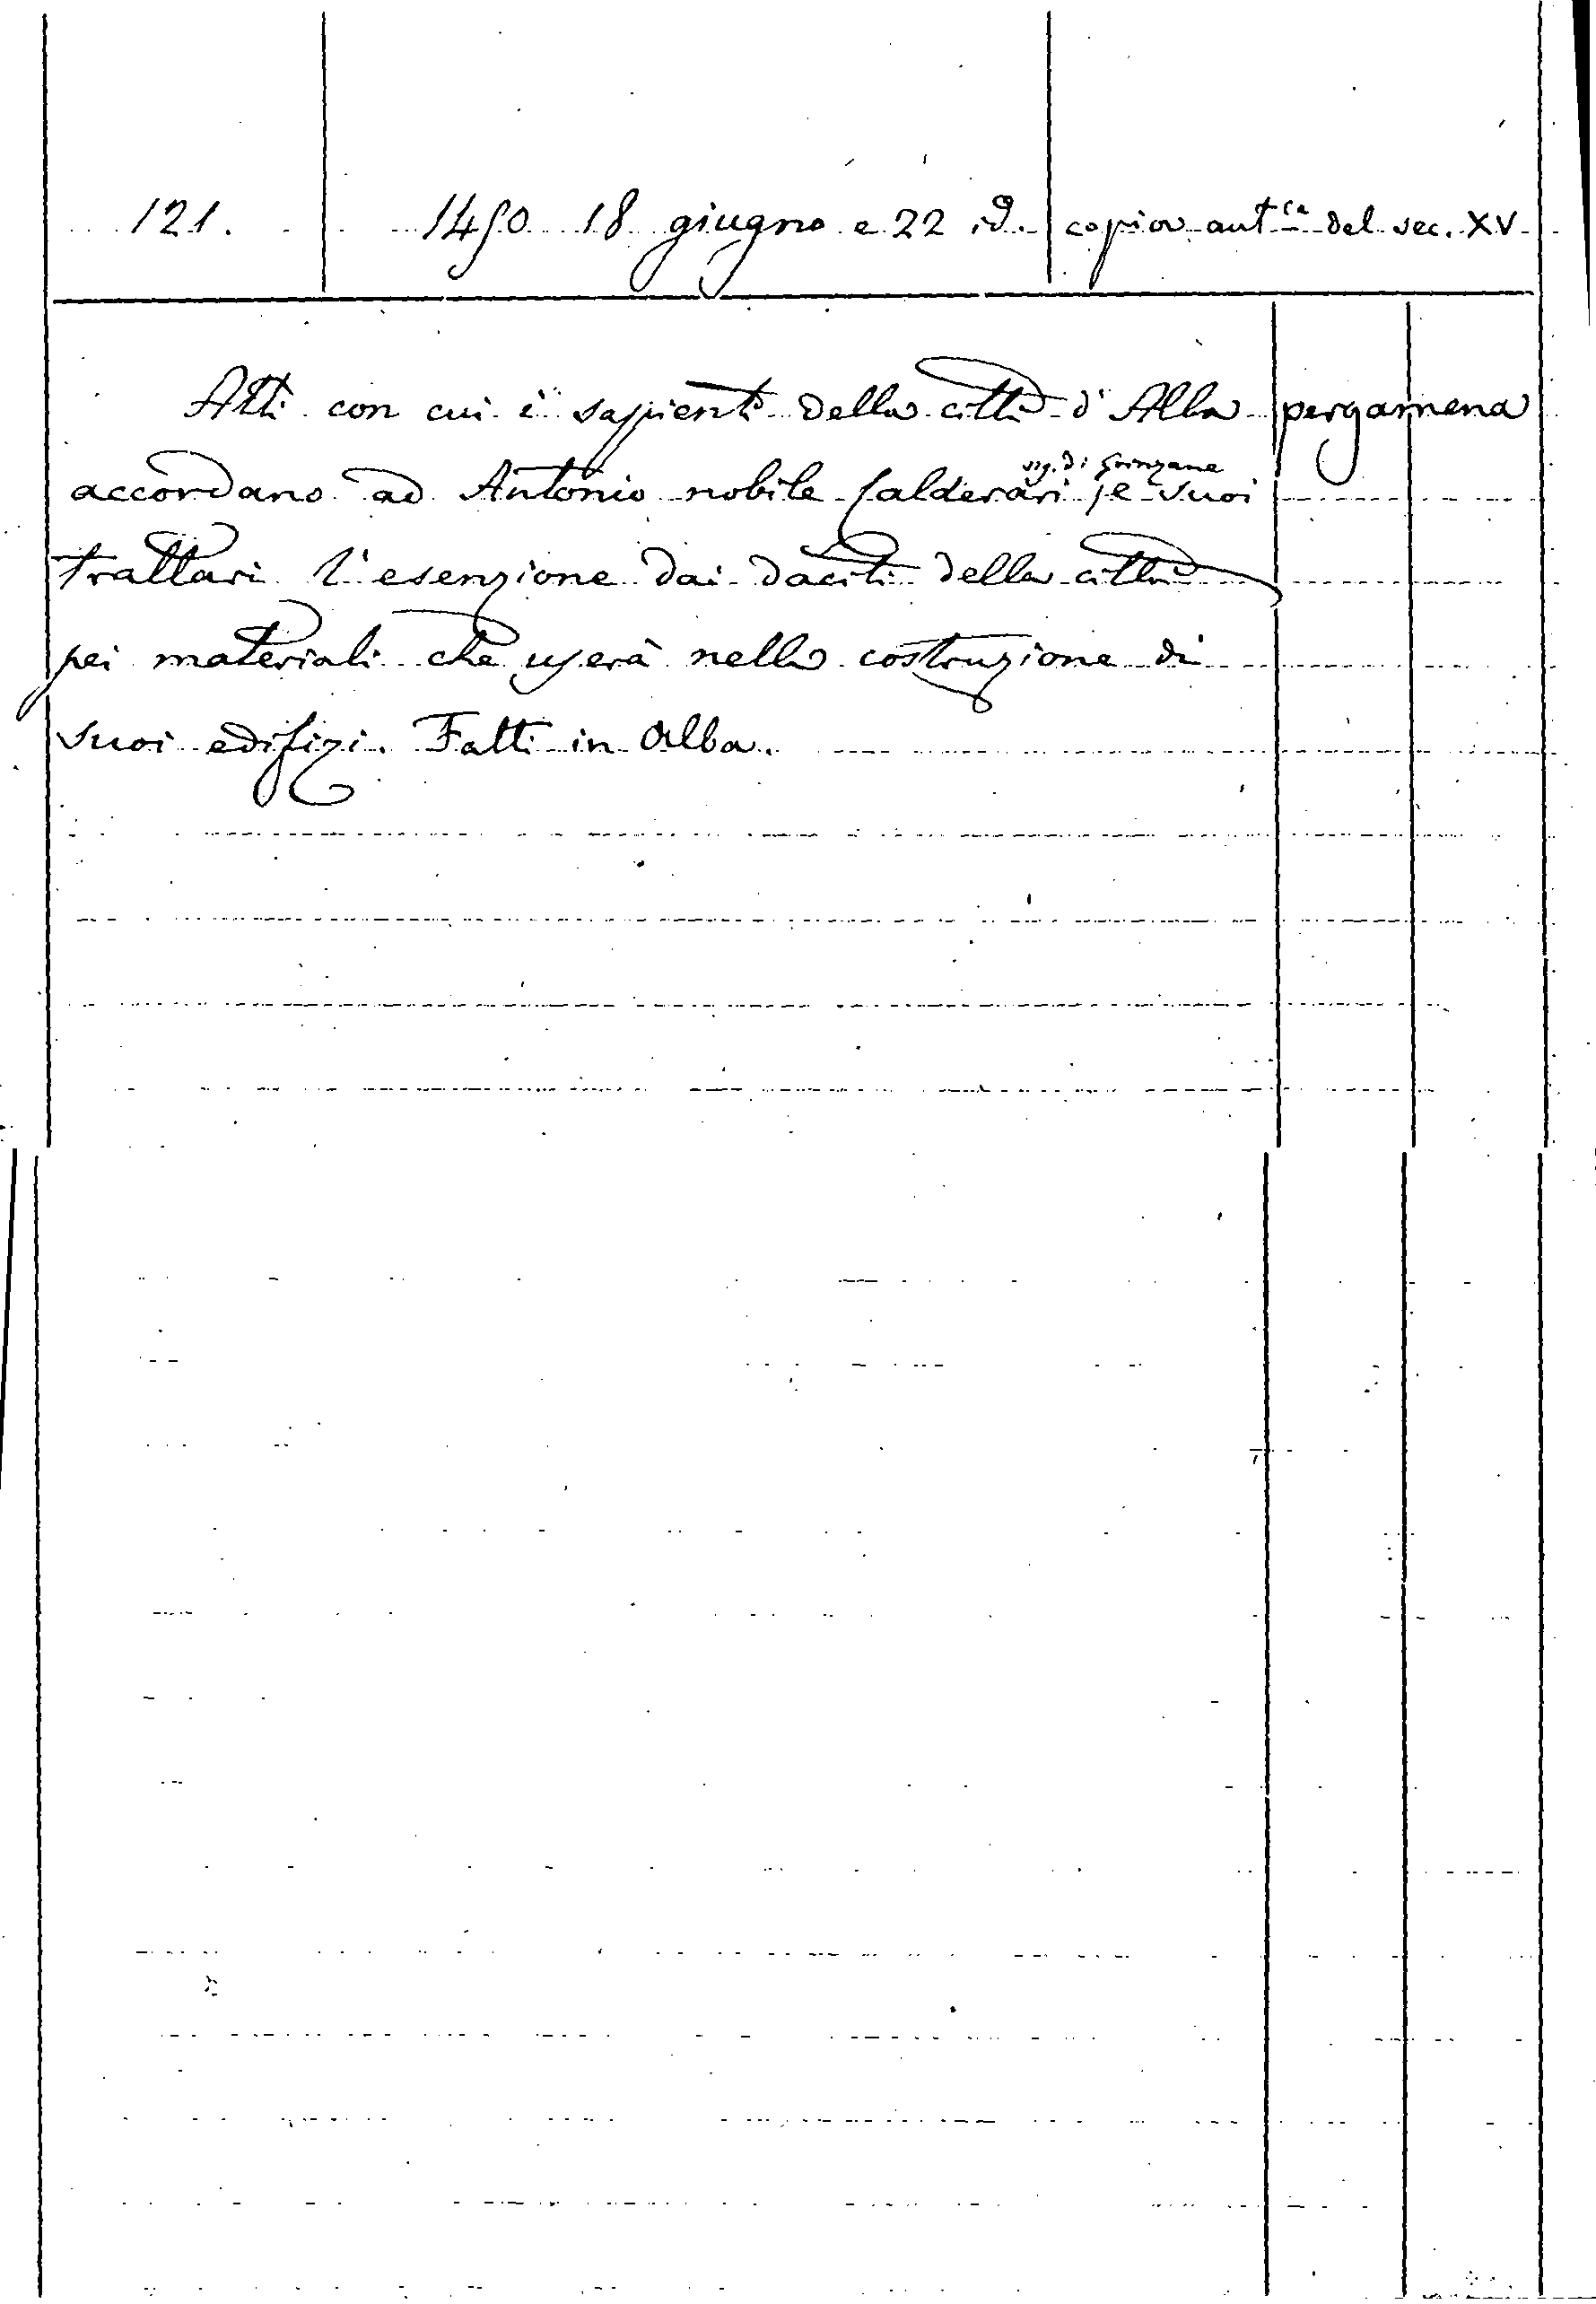 121. 1490 18 giugno e 22 id. copia aut.ca del sec. XV
Atti con cui i sapienti della città d'Alba pergamena
sig. di Grinzane
accordano ad Antonio nobile Calderari e suoi
trattari l'esenzione dai daciti della città
pei materiali che userà nella costruzione di
suoi edifizi. Fatti in Alba.